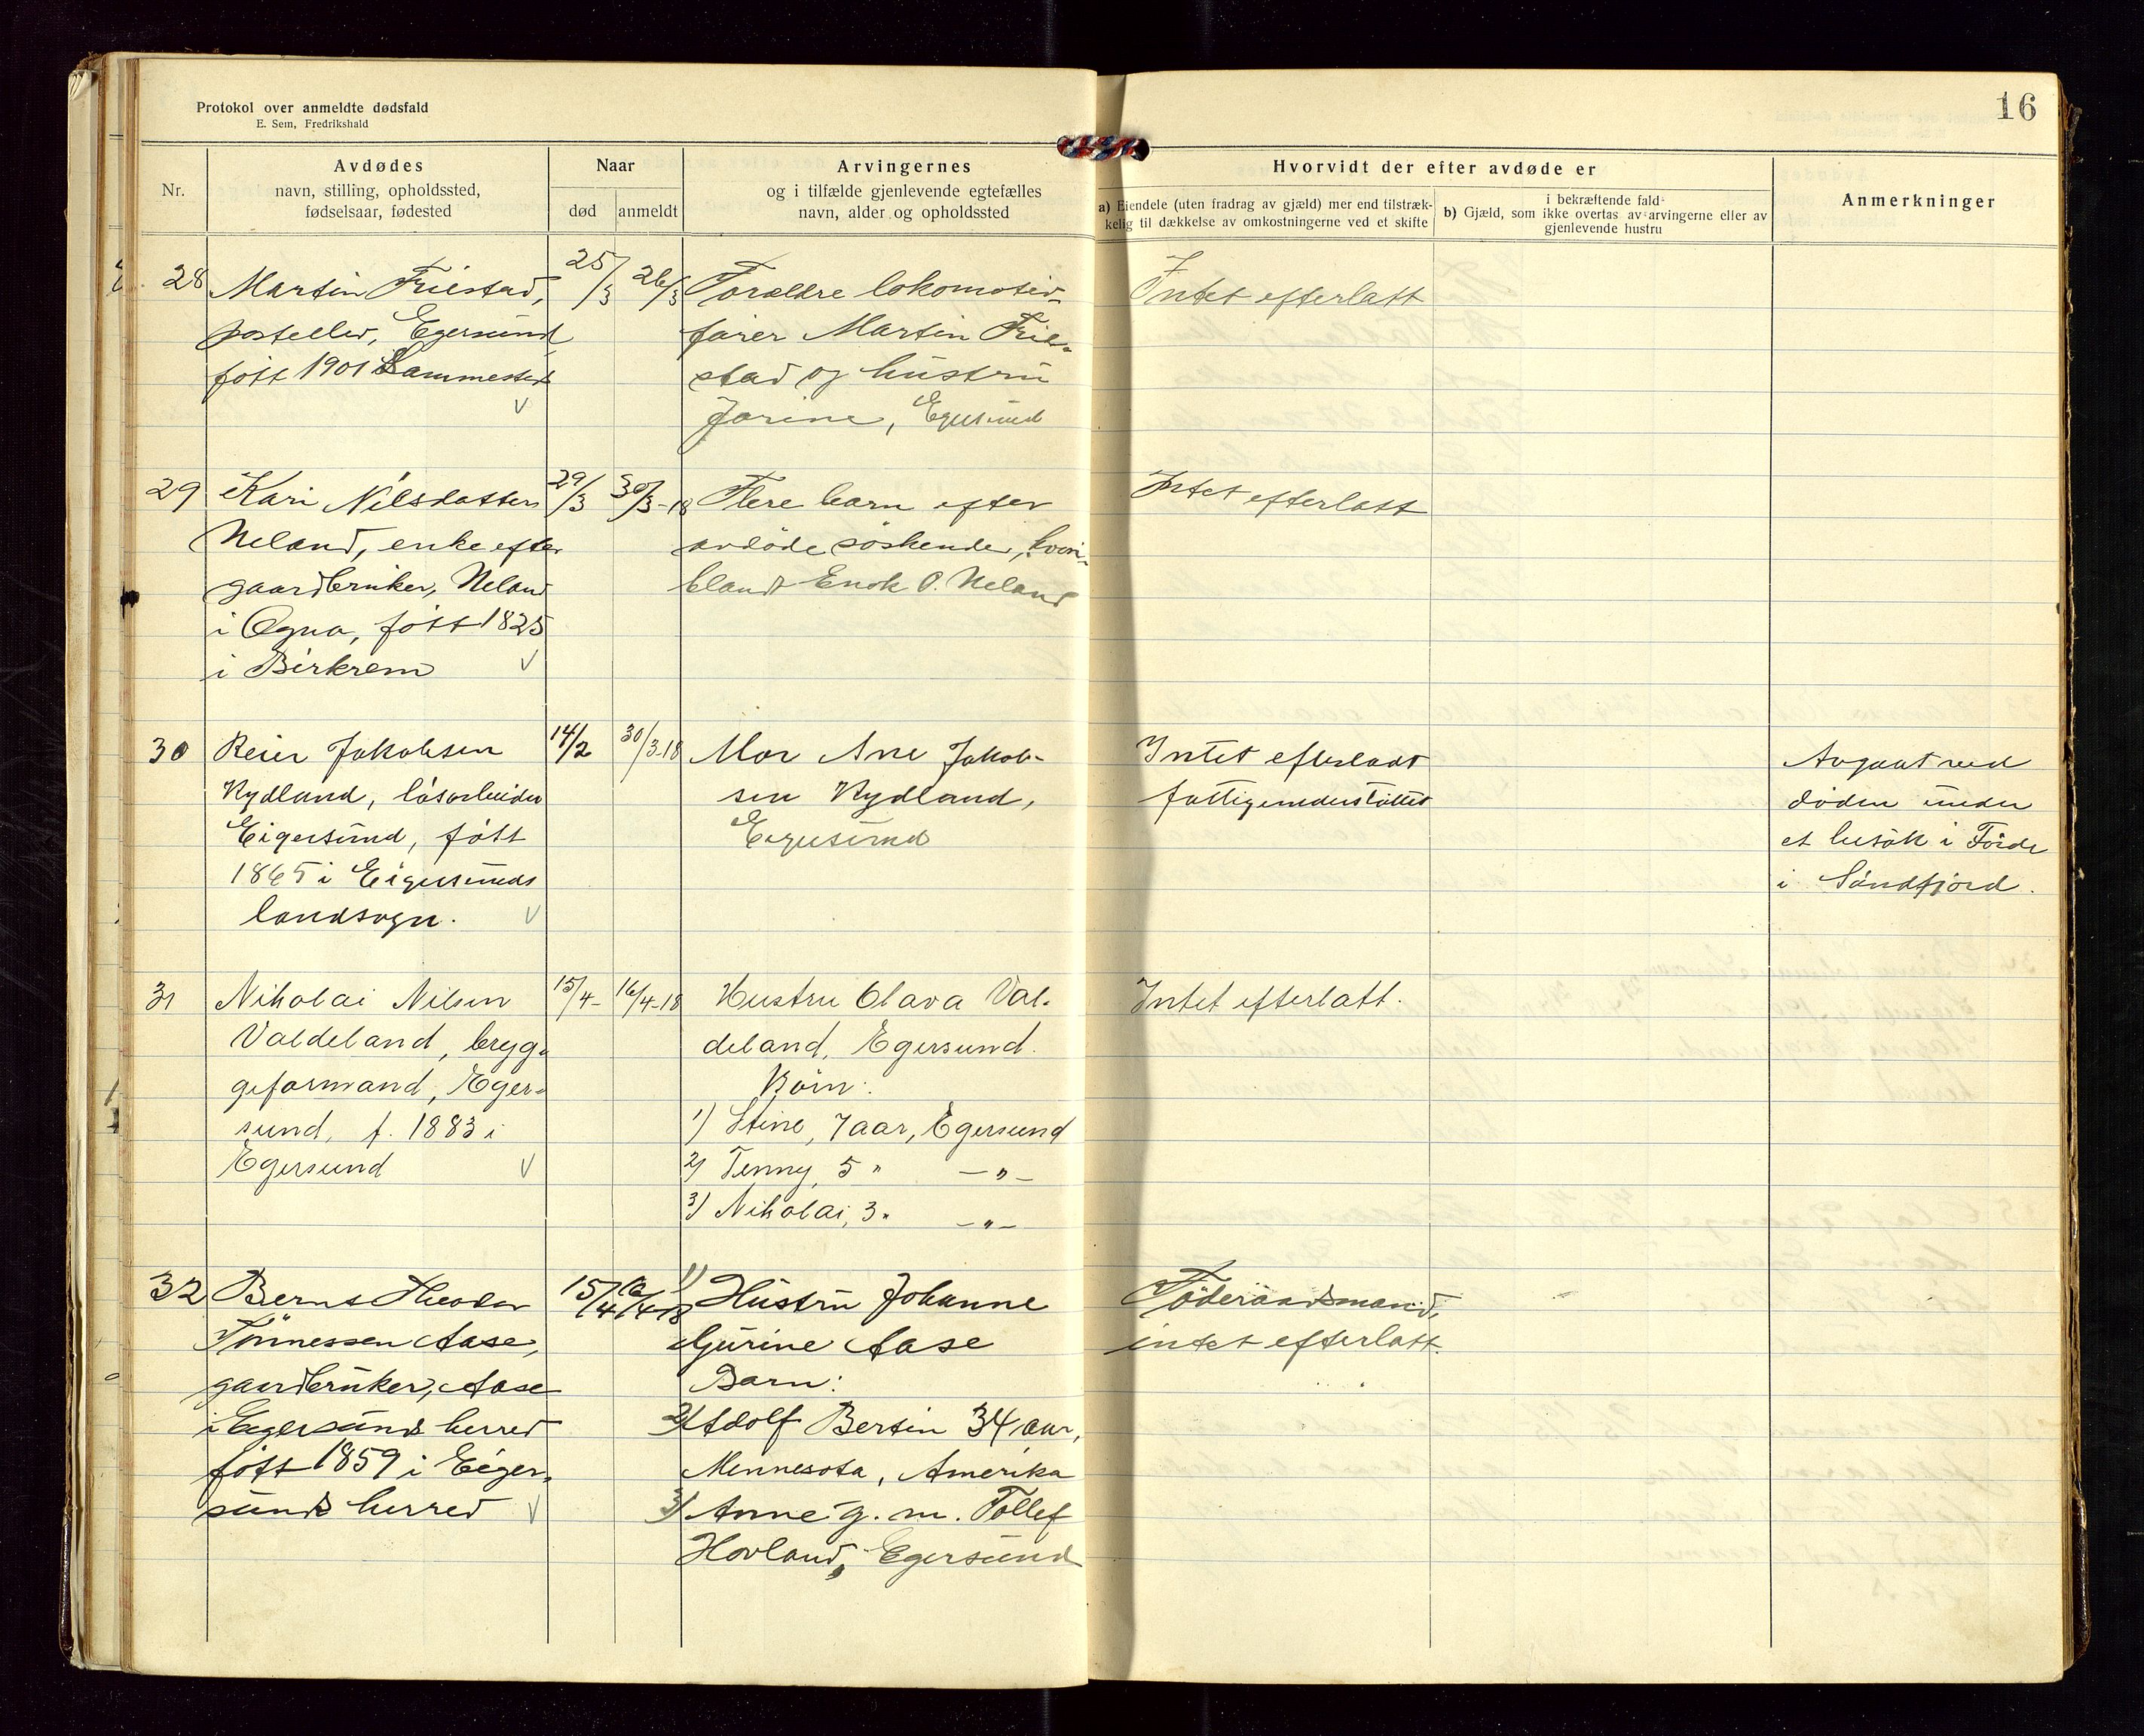 16
Protokol over anmeldte dødsfald
E. Sem, Fredrikshald
Nr.
Avdødes
navn, stilling, opholdssted,
fødselsaar, fødested
Naar
død anmeldt
Arvingernes
og i tilfælde gjenlevende egtefælles
navn, alder og opholdssted
Hvorvidt der efter avdøde er
a) Eiendele (uten fradrag av gjæld) mer end tilstræk-
kelig til dækkelse av omkostningerne ved et skifte
i bekræftende fald
b) Gjæld, som ikke overtas av arvingerne eller av
gjenlevende hustru
Anmerkninger
28
Martin Friestad,
postelev, Egersund
født 1901 Sammesteds
25/3
26/3
Forældre lokomotiv-
fører Martin Frie-
stad og hustru
Jorine, Egersund
Intet efterlatt
29
Kari Nilsdatter
Neland, enke efter
gaardbruker, Neland
i Ogna, født 1825
i Birkrem
29/3
30/3-18
Flere barn efter
avdøde søskende, hvori-
blandt Enok O. Neland
Intet efterlatt
30
Reier Jakobsen
Rydland, løsarbeider
Eigersund, født
1865 i Eigersunds
landsogn.
14/2
30/3-18
Mor Ane Jakob-
sen Rydland,
Egersund
Intet efterladt
fattigunderstøttet
Avgaat ved
døden under
et besøk i Førde
i Søndfjord.
31
Nikolai Nilsen
Valdeland, bryg-
geformand, Eger-
sund, f. 1883 i
Egersund
15/4-
16/4-18
Hustru Olava Val-
deland, Egersund.
Børn:
1) Stine, 7 aar, Egersund
2) Tenny, 5 " -"-
3) Nikolai, 3 " -"-
Intet efterlatt.
32
Bernt Theodor
Tønnessen Aase,
gaardbruker, Aase
i Eigersund herred
født 1859 i Eiger-
sunds herred
15/4
16/4-18
1) Hustru Johanne
Gurine Aase
Barn:
2) Adolf Bertin 34 aar,
Minnesota, Amerika
3) Anne g. m. Tollef
Hovland, Egersund
Føderaadsmand,
intet efterlatt.